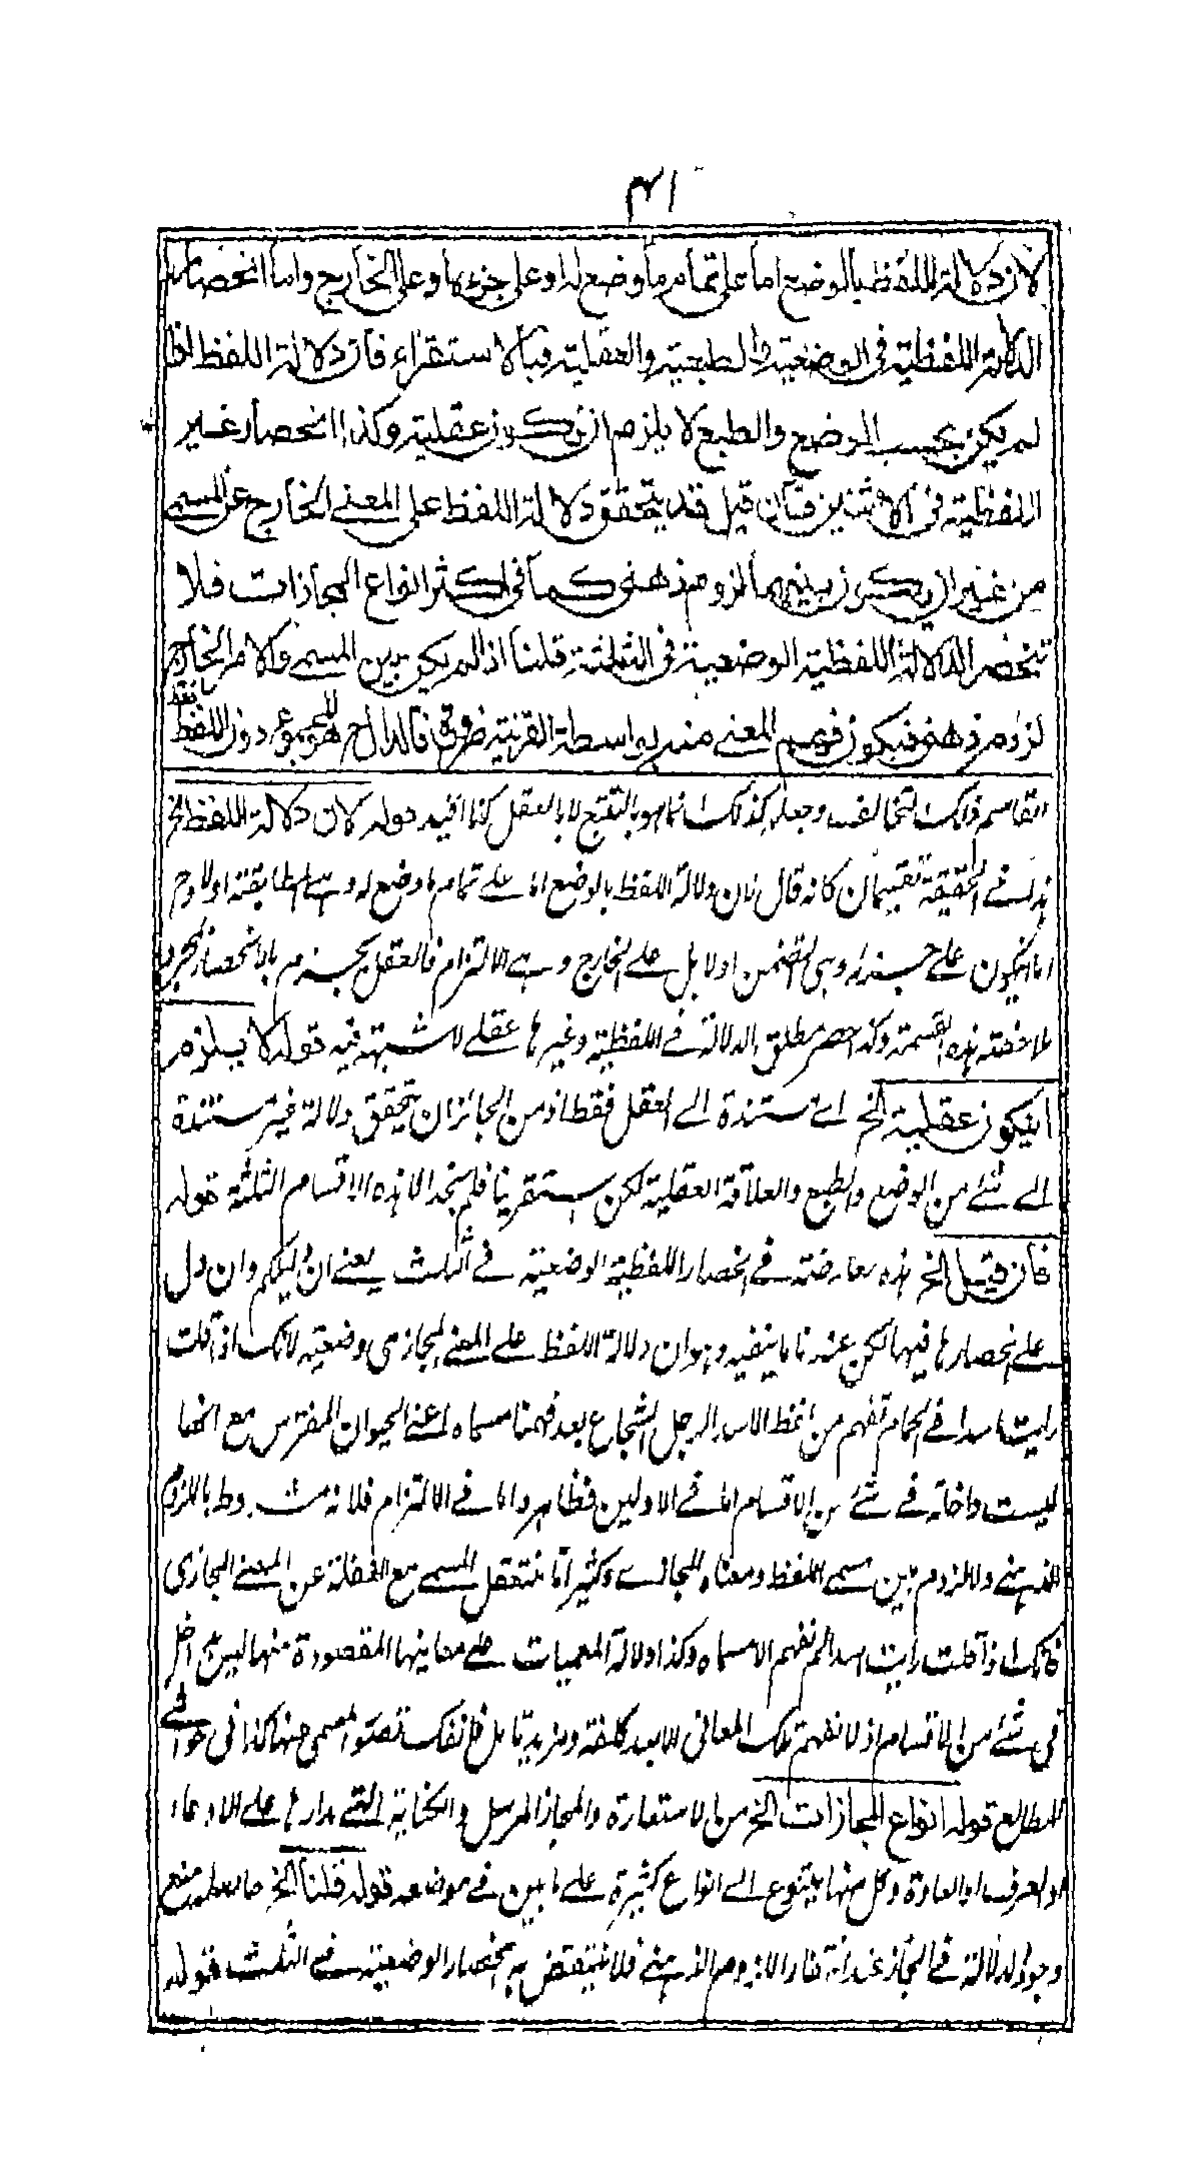 ٤١
لان دلالة اللفظ بالوضع اما على تمام ما وضع له او على جزءه او على الخارج واما انحصار
الدلالة اللفظية فى الوضعية والطبعية والعقلية فبالاستقراء فان دلالة اللفظ اذا
لم يكن بحسب الوضع والطبع لا يلزم ان يكون عقلية وكذا انحصار غير
اللفظية فى الاثنين فان قيل قد يتحقق دلالة اللفظ على المعنى الخارج عن المسمى
من غير ان يكون بينهما لزوم ذهنى كما فى اكثر انواع المجازات فلا
تنحصر الدلالة اللفظية الوضعية فى الثلثة قلنا اذا لم يكن بين المسمى والامر الخارج
لزوم ذهنى فيكون فهم المعنى منه بواسطة القرينة ضرورة فالدال هو المجموع دون اللفظ فقط
التقاسم ذلك التخالف وجعله كذلك انما هو بالتتبع لا بالعقل كذا افيد قوله لان دلالة اللفظ الخ
هذا فى الحقيقة تقسيمان كانه قال ان دلالة اللفظ بالوضع اما على تمام ما وضع له وهى المطابقة اولا وح
اما ان يكون على جزءه وهى التضمن اولا بل على الخارج وهى الالتزام فالعقل يجزم بالانحصار بمجرد
ملاحظة هذه القسمة وكذا حصر مطلق الدلالة فى اللفظية وغيرها عقلى لا شبهة فيه قوله لا يلزم
ان يكون عقلية الخ اى مستندة الى العقل فقط اذ من الجائز ان يتحقق دلالة غير مستندة
الى شئ من الوضع والطبع والعلاقة العقلية لكن استقرينا فلم نجد الا هذه الاقسام الثلثة قوله
فان قيل الخ هذه معارضة فى انحصار اللفظية الوضعية فى الثلث يعنى ان دليلكم وان دل
على انحصارها فيها لكن عندنا ما ينفيه وهو ان دلالة اللفظ على المعنى المجازى وضعية لانك اذا قلت
رايت اسدا فى الحمام تفهم من لفظ الاسد الرجل الشجاع بعد فهمنا مسماه اعنى الحيوان المفترس مع انها
ليست داخلة فى شئ من الاقسام اما فى الاولين فظاهر واما فى الالتزام فلانه مشروط باللزوم
الذهنى ولا لزوم بين مسمى اللفظ ومعناه المجازى وكثيرا ما نتعقل المسمى مع الغفلة عن المعنى المجازى
فانك اذا قلت رايت اسدا لم نفهم الا مسماه وكذا دلالة المعميات على معانيها المقصودة منها ليس داخل
فى شئ من الاقسام اذ لا نفهم تلك المعانى الا بعد كلفة ومزيد تامل فلم تنفك تصور المسمى عنها كذا فى حواشى
المطالع قوله انواع المجازات الخ من الاستعارة والمجاز المرسل والكناية التى مدارها على الادعاء
او العرف او العادة وكل منها يتنوع الى انواع كثيرة على ما بين فى موضعه قوله قلنا الخ حاصله منع
وجود الدلالة فى المجاز عند انتفاء اللزوم الذهنى فلا ينتقض به انحصار الوضعية فى الثلث قوله